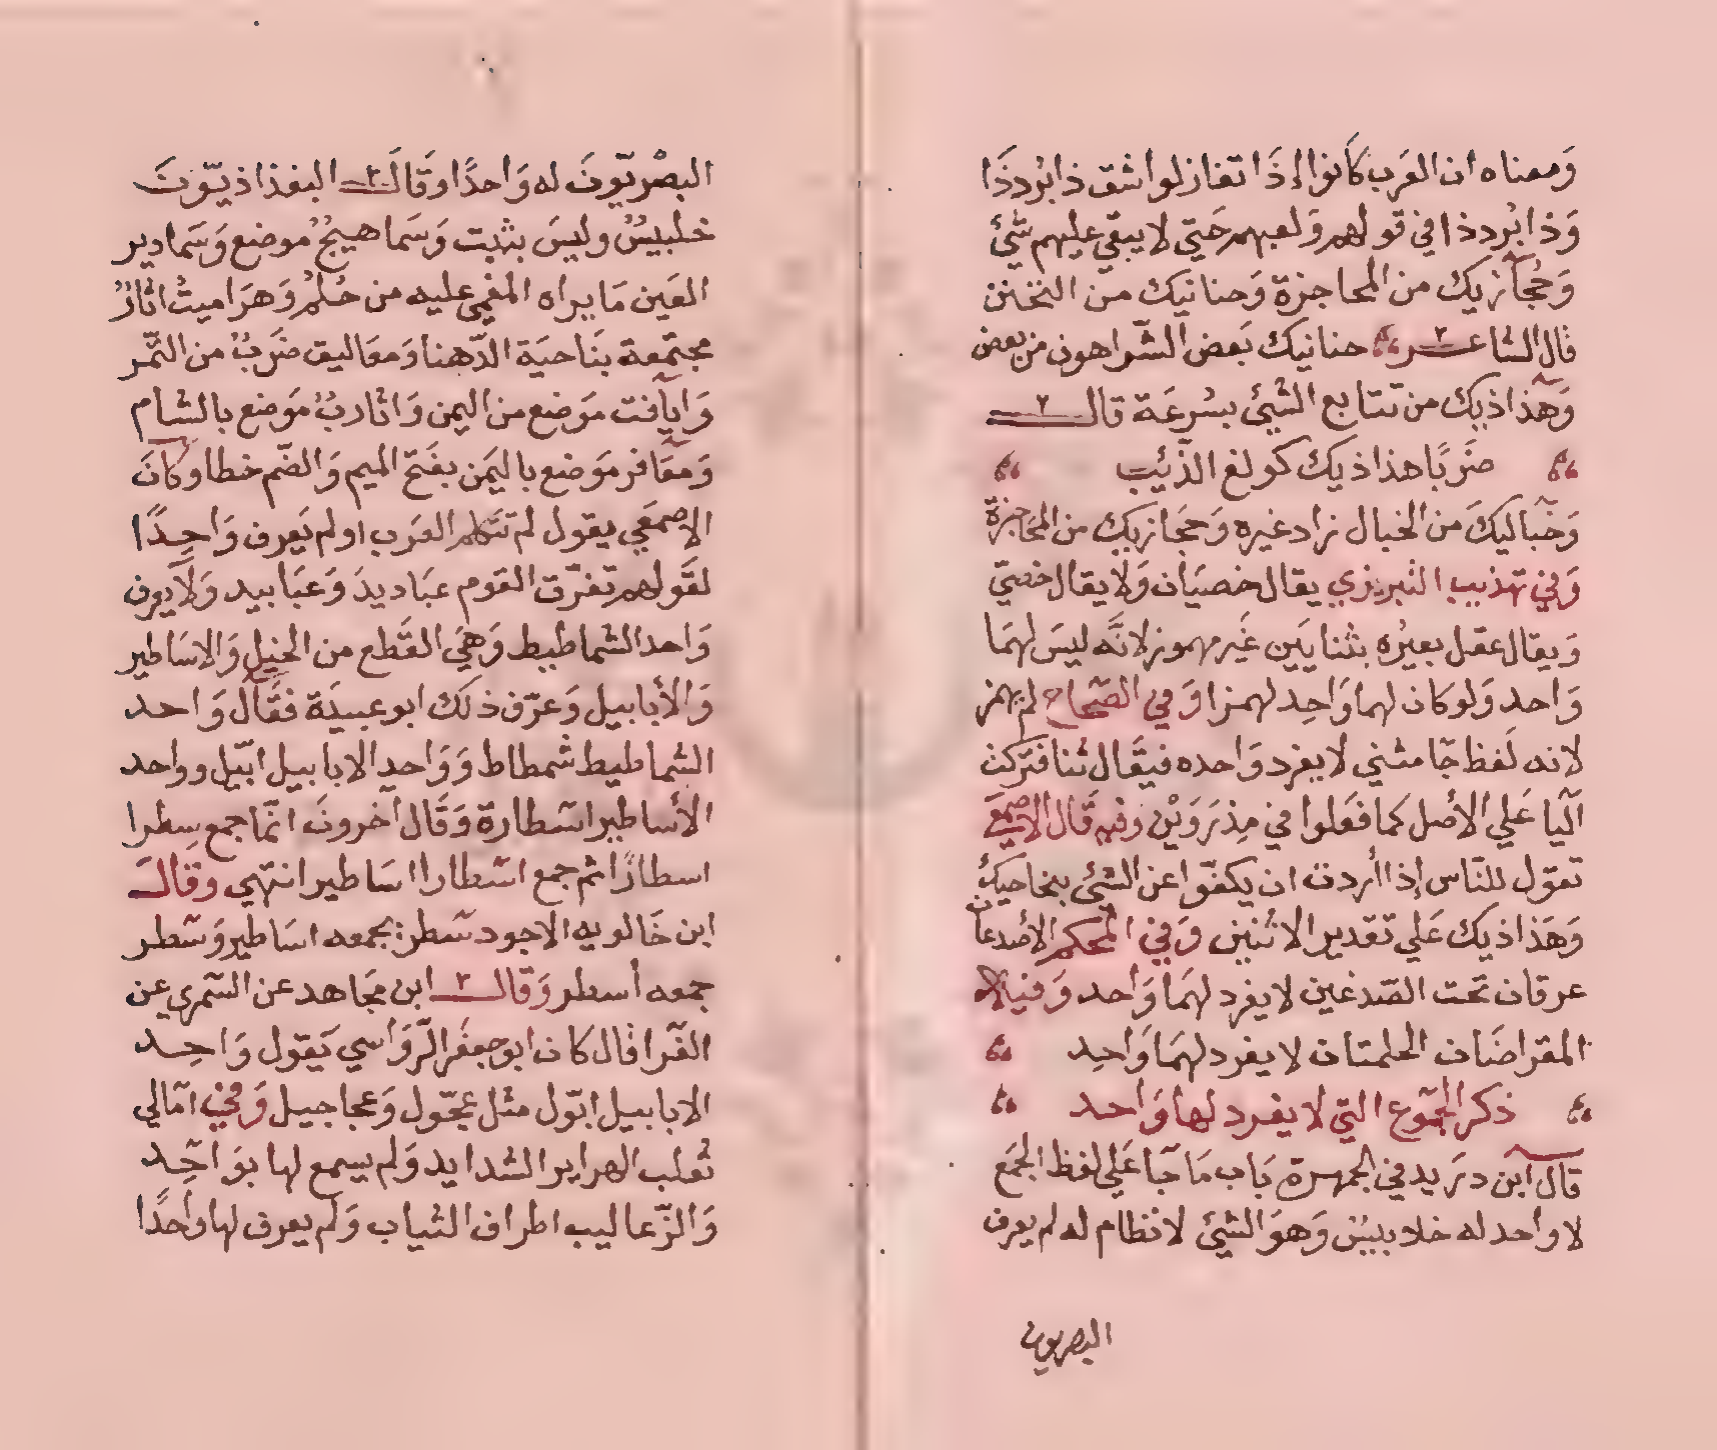 وَمعناه ان العَرب كَانوا إذَا تغازلوا شق ذا بُرد ذَا
وَذا بُرد ذا في قولهم وَلعبهم حَتي لا يبقي عليهم شئ
وَحُجَازيك من المحاجزة وَحنانيك من التحنن
قال الشاعر حنانيك بَعض الشّر اهون من بعض
وَهَذاذيك من تتابع الشيئ بسُرعَة قال
ضَربًا هذاذيك كولغ الذّئيب
وَخَباليكَ من الخبال زاد غيره وَحجَازيك من المحاجزة
وَفي تهذيب التبريزي يقال خصيَان وَلا يقال خصيّ
وَيقال عقل بعيرُه بثنايَين غَير مهموز لانّه ليسَ لهمَا
وَاحد وَلو كان لهما وَاحِد لهمزا وَفي الصّحاح لم يهمز
لانه لَفظ جَا مثني لا يفرد وَاحده فيقَال ثنا فتركت
اليَا عَلي الأصْل كمَا فعَلوا في مِذرَوَيْن وفيه قَال الاصمعَي
تقوّل للنّاس إذا أردت ان يكفّوا عن الشئي بحاحيكُ
وَهَذاذيك عَلي تقدير الاثنين وَفي المحكم الأصْدعان
عرقان تحت الصّدغين لا يفرد لهمَا وَاحد وَفيه
المقراضَان الجلمتان لا يفرد لهمَا وَاحِد
ذكر الجمَوع التي لا يفرد لها وَاحد
قال ابن درَيد في الجمهرة بَاب مَا جَا عَلي لفظ الجمَع
لا واحد له خلابيسْ وَهوَ الشيئ لا نظام له لم يعرف
البصريون
البصْريّونَ له وَاحدًا وقَالَ البغذاذيّونَ
خلبيسٌ وليسَ بثبت وَسَماهيجُ موضع وَسَمادير
العَين مَا يراه المغمي عليه من حُلم وَهرَاميتُ اثارُ
مجتمعة بنَاحيَة الدّهنا وَمعَاليق ضَربٌ من التّمر
وَايافت مَوضع من اليمن وَاثاربٌ مَوضع بالشام
وَمعَافر مَوضع باليَمن بفَتح الميم وَالضّم خطا وكانَ
الاصْمعَي يقول لم تتكلم العَرب او لم يَعرف وَاحِدًا
لقَولهم تفرّق القوم عبَاديدَ وَعبَابيد وَلا يعرف
وَاحد الشماطيط وَهيَ القَطع من الخيل وَالاسَاطير
وَالأبابيل وَعرّف ذلَك ابو عبيدَة فقَال وَاحد
الشماطيط شمطاط وَوَاحد الابابيل ابّيل وواحد
الأساطير اسْطارة وَقَال اخرونَ انّما جمع سِطرا
اسطارًا ثم جمع اسْطارا اسَاطير انتهي وقالَ
ابن خَالويه الاجود سَطر: بجمعه اسَاطير وَسَطر
جمعه أسطر وَقالَ ابن مجَاهد عن السّمري عن
الفّرا قال كَان ابو جعفَر الرّوَاسي يَقول وَاحِد
الابابيل ابّول مثل عجّول وَعجاجيل وَفي امَالي
ثعلب الهراير الشدايد وَلم يسمع لها بوَاحِد
وَالزّعاليب اطراف الثياب وَلم يعرف لها وَاحدًا